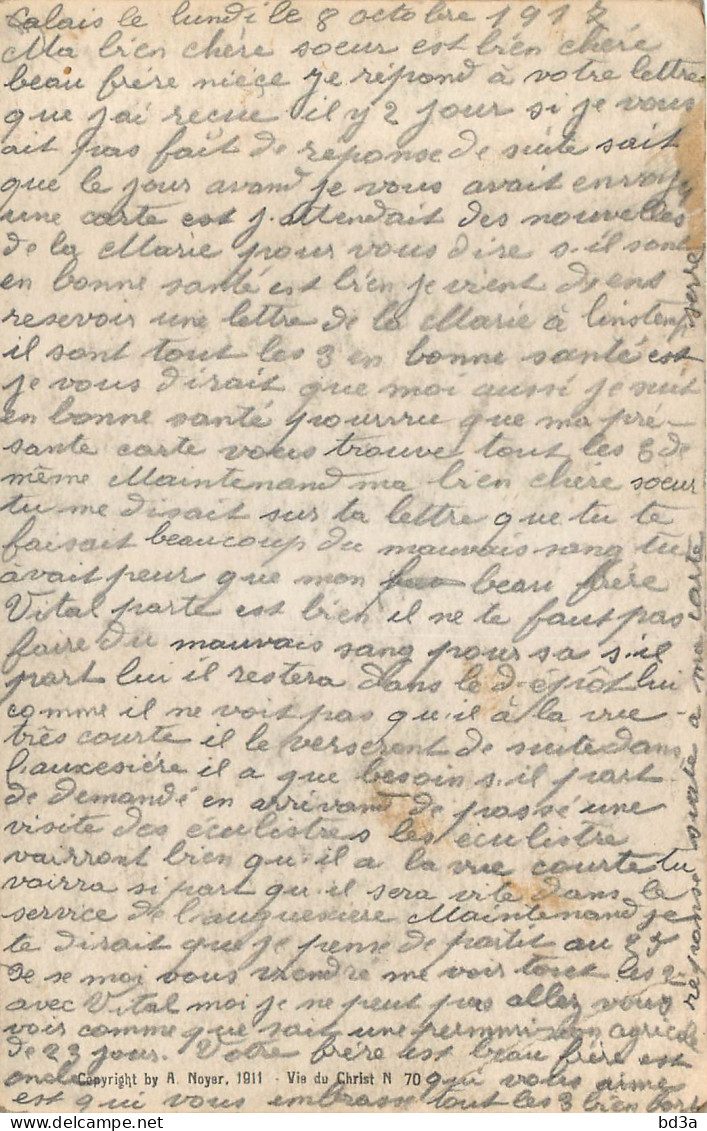 Calais le lundi le 8 octobre 1917
Ma bien chère soeur est bien chère
beau frère nièce je répond à votre lettre
que j'ai reçue il y 2 jour si je vous
ait pas fait de reponse de suite sait
que le jour avand je vous avait envoyé
une carte est j'attendait des nouvelles
de la Marie pour vous dire s'il sont
en bonne santé est bien je vient de
resevoir une lettre de la Marie à l'instenp
il sont tout les 3 en bonne santé est
je vous dirait que moi aussi je suit
en bonne santé pourvu que ma pré-
sante carte vous trouve tout les 3 de
même Maintenand ma bien chère soeur
tu me disait sur ta lettre que tu te
faisait beaucoup du mauvais sang tu
avait peur que mon beau frère
Vital parte est bien il ne te faut pas
faire du mauvais sang pour sa s'il
part lui il restera dans le d-épôt lui
comme il ne voit pas qu'il à la vue
très courte il le verseront de suite dans
l'auxesière il a que besoin s'il part
de demandé en arrivand de passé une
visite des éculistres les éculistre
vairront bien qu'il a la vue courte tu
vairra si part qu'il sera vite dans le
service de l'auguesière Maintenand je
te dirait que je pense de partit au 27
de se moi vous viendré me voir tout les 2
avec Vital moi je ne peut pas allez vous
voir comme que sait une permmission agricole
de 23 jour. Votre frère est beau frère est
oncle qui vous aime
Copyright by A. Noyer, 1911 - Vie du Christ N 70
est qui vous embrasse tout les 3 bien fort
reponse suite a ma carte
serre